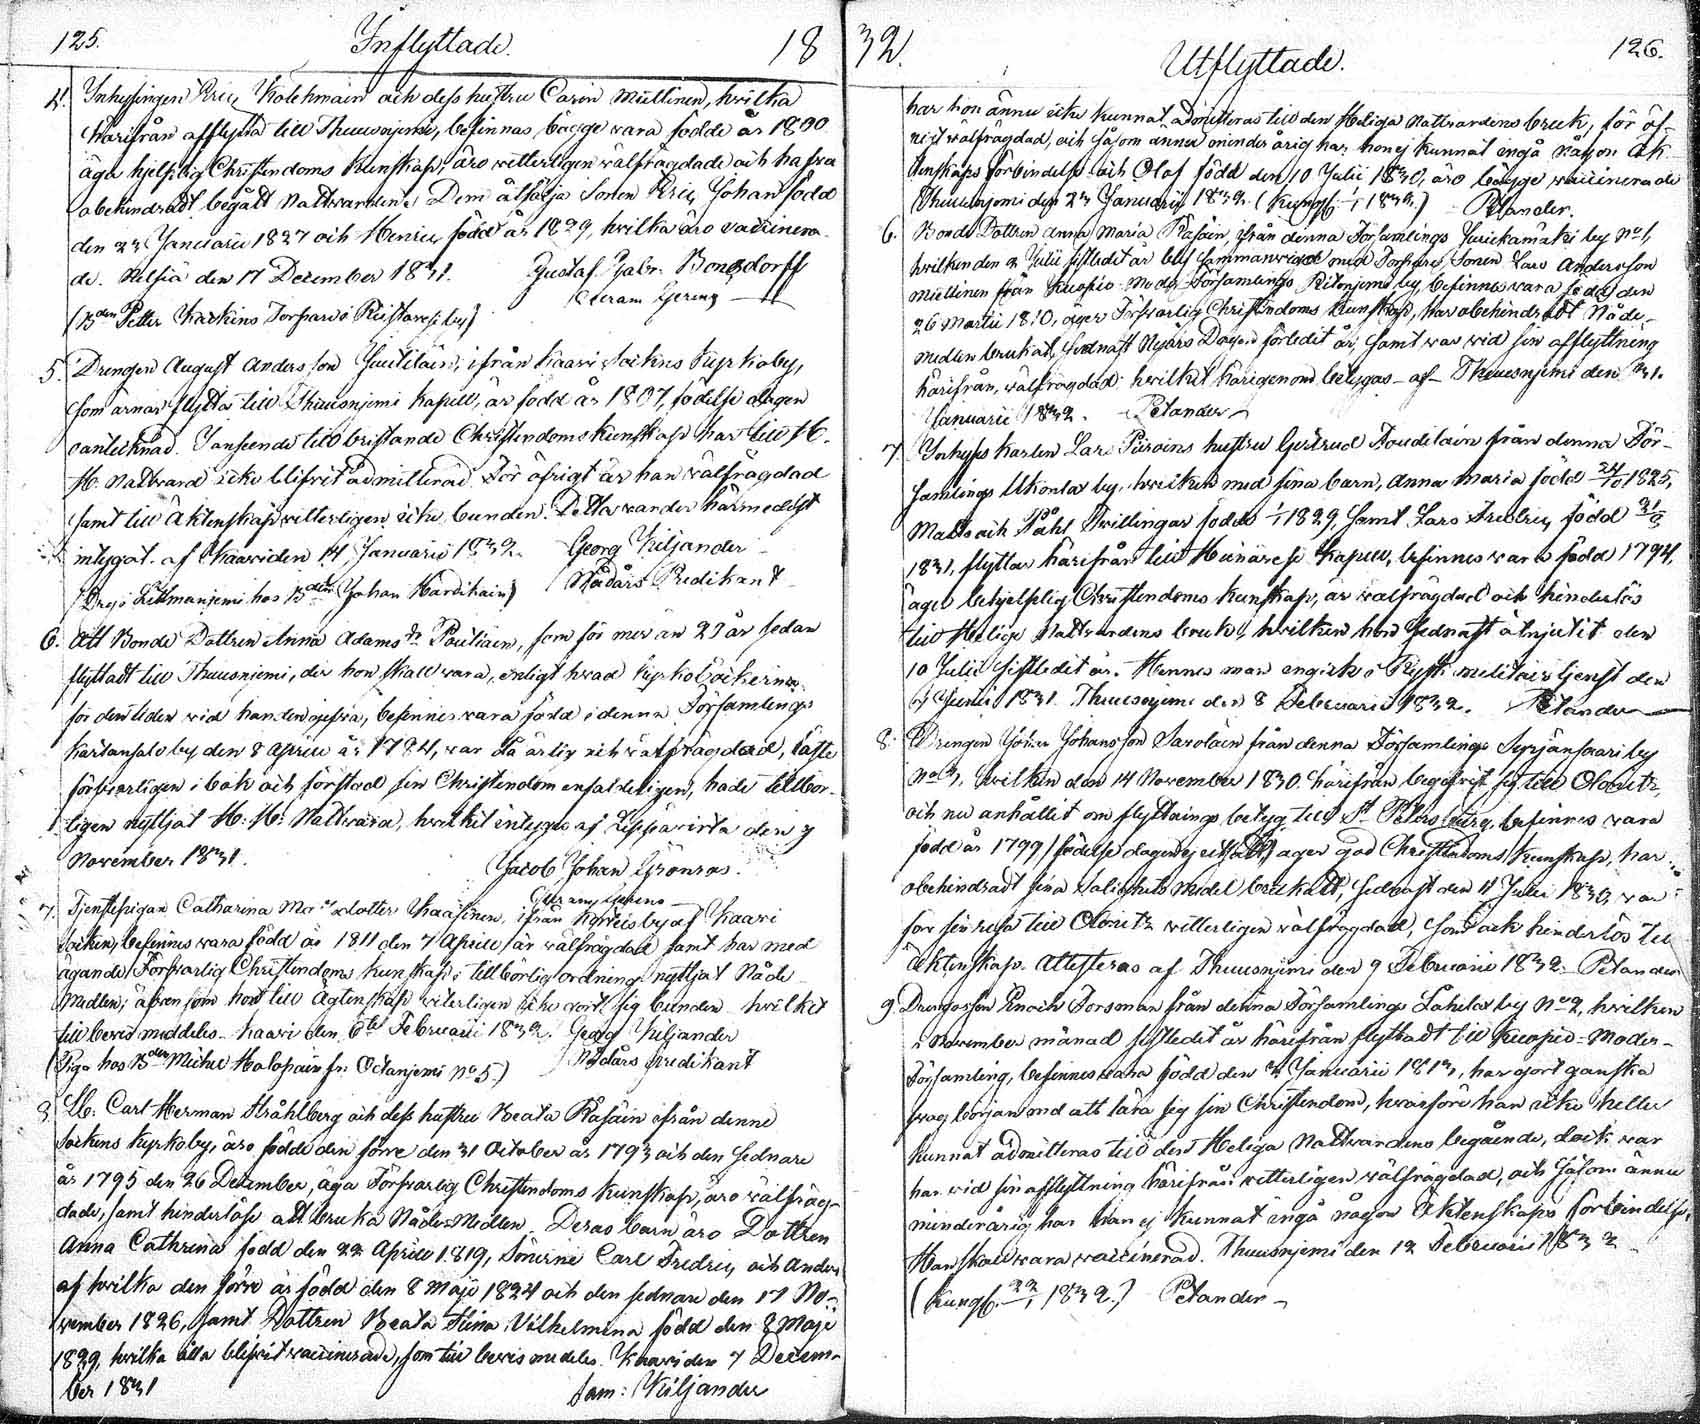 125. Inflyttade. 18
4. Inhysingen Eric Kolehmain och dess hustru Carin Miettinen, hvilka
härifrån afflytta till Thuusnjemi, befinnas bägge vara födde år 1800
äga hjelplig Christendoms kunskap, äro vitterligen välfrägdade och hafva
obehindradt begått Nattvarden. Dem åtfölja Sonen Eric Johan född
den 23 Januarii 1827 och Henric född år 1829, hvilka äro vaccinera-
de. Nilsiä den 17 December 1831. Gustaf Gabr: Bonsdorff
(Bden Petter Karkins Torpare i Riistavesi by)
5. Drengen August Andersson Juutilain, ifrån Kaavi Sockns Kyrkoby,
som ärnar flytta till Thuusnjemi Kapell, är född år 1807, födelse dagen
oantecknad. I anseende till bristande Christendoms kunskap har till H.
H. Nattvard icke blifvit admitterad. För öfrigt är han välfrägdad
samt till Äktenskap vitterligen icke bunden. Detta varder härmedelst
intygat af Kaavi den 14 Januarii 1832. Georg Kiljander
(Dreg i Litmanjemi hos Bden Johan Hardikain) Nådårs Predikant
6. Att Bonde Dottren Anna Adamsdr Pautiain, som för mer än 23 år sedan
flyttadt till Thuusnjemi, der hon skall vara, enligt hvad Kyrkoböckerna
för den tiden vid handen gifva, befinnes vara född i denna Församlings
Kartansalo by den 8 Aprill år 1784, var då ärlig och välfrägdad, läste
försvarligen i bok och förstod sin Christendom enfaldeligen, hade tillbör-
ligen nyttjat H: H: Nattvard, hvilket intygas af Leppävirta den 7
November 1831. Jacob Johan Grönros.
7. Tjenstepigan Catharina Mats dotter Kaasinen, ifrån by af Kaavi
Socken, befinnes vara född år 1811 den 7 Aprill är välfrägdad samt har med
ägande Försvarlig Christendoms kunskap i tillbörlig ordning nyttjat Nåde-
medlen, äfven som hon till Ägtenskap viterligen icke vort sig bunden hvilket
till bevis meddeles. Kaavi den 6te Februarii 1832. Georg Kiljander
(Piga hos Bden Michel Holopain fr: Octanjemi No 5.) Nådårs Predikant
8. Carl Herman Stråhlberg och dess hustru Beata Räsäin ifrån denne
Sockens Kyrkoby, äro födde den förre den 31 October år 1793 och den sednare
år 1795 den 26 December, äga Försvarlig Christendoms kunskap, äro välfräg-
dade, samt hinderlöse att bruka Nåde Medlen. Deras barn äro Dottren
Anna Cathrina född den 22 Aprill 1819, Sönerne Carl Fredric och Anders
af hvilka den förre är född den 8 Maji 1824 och den sednare den 17 No-
vember 1826, samt Dottren Beata Stina Vilhelmina född den 8 Maji
1829, hvilka alla blifvit vaccinerade, som till bevis medeles. Kaavi den 7 Decem-
ber 1831 Sam: Kiljander
32. Utflyttade. 126.
har hon ännu icke kunnat admitteras till den Heliga Nattvardens bruk, för öf-
rigt välfrägdad, och såsom ännu minderårig har hon ej kunnat ingå någon Äk-
tenskaps förbindelse och Olof född den 10 Julii 1830, äro bägge vaccinerade
Thuusnjemi den 23 Januarii 1832. Petander.
6. Bonde Dottren Anna Maria Räsäin, ifrån denna Församlings Juurikamäki by No 1,
hvilken den 2 Julii sistledit år blef sammanvigd med Torpare Sonen Lars Andersson
Miettinen från Kuopio Moder Församlings Ritonjemi by, befinnes vara född den
26 Martii 1810, äger Försvarlig Christendoms kunskap, har obehindradt Nåde-
medlen brukat, sednast Nyårs Dagen förledit år, samt var vid sin afflyttning
härifrån välfrägdad: hvilket härigenom betygas af Thuusnjemi den 31.
Januarii 1832. Petander
7. Inhyses karlen Lars Piirains hustru Gertrud Toudilain från denna För-
samlings Ukonlax by, hvilken med sina barn, Anna Maria född 24/10 1825,
Matts och Påhl Tvillingar födde 1829, samt Lars Fredric född
1831, flyttar härifrån till Heinävesi Kapell, befinnes vara född 1794,
äger behjelpelig Christendoms kunskap, är välfrägdad och hinderlös
till Heliga Nattvardens bruk, hvilken hon sednast åtnjutit den
10 Julii sistledit år. Hennes man ingick i Rysk militair tjenst den
Junii 1831. Thuusnjemi den 8 Februarii 1832. Petander
8. Drengen Johan Johansson Savolain från denna Församlings Syrjänsaari by
No 3, hvilken den 14 November 1830 härifrån begifvit sig till Olonitz,
och nu anhållit om flyttnings betyg till St Petersburg, befinnes vara
född år 1799 (födelse dagen ej uppsatt) äger god Christendoms kunskap, har
obehindradt sina Salighets medel brukadt, sednast den 11 Julii 1830, var
före sin resa till Olonitz vitterligen välfrägdad, samt ock hinderlös till
Äktenskap. Attesteras af Thuusnjemi den 9 Februarii 1832. Petander
9. Drengossen Enoch Forsman från denna Församlings Lahelax by No 2, hvilken
i November månad sistledit år härifrån flyttadt till Kuopio-Moder-
Församling, befinnes vara född den 3 Januarii 1813, har gort ganska
svag början med att lära sig sin Christendom, hvarföre han icke heller
kunnat admitteras till den Heliga Nattvardens begående, dock var
han vid sin afflyttning härifrån vitterligen välfrägdad, och såsom ännu
minderårig har han ej kunnat ingå någon Äktenskaps förbindelse.
Han skall vara vaccinerad. Thuusnjemi den 12 Februarii 1832
1832.) Petander